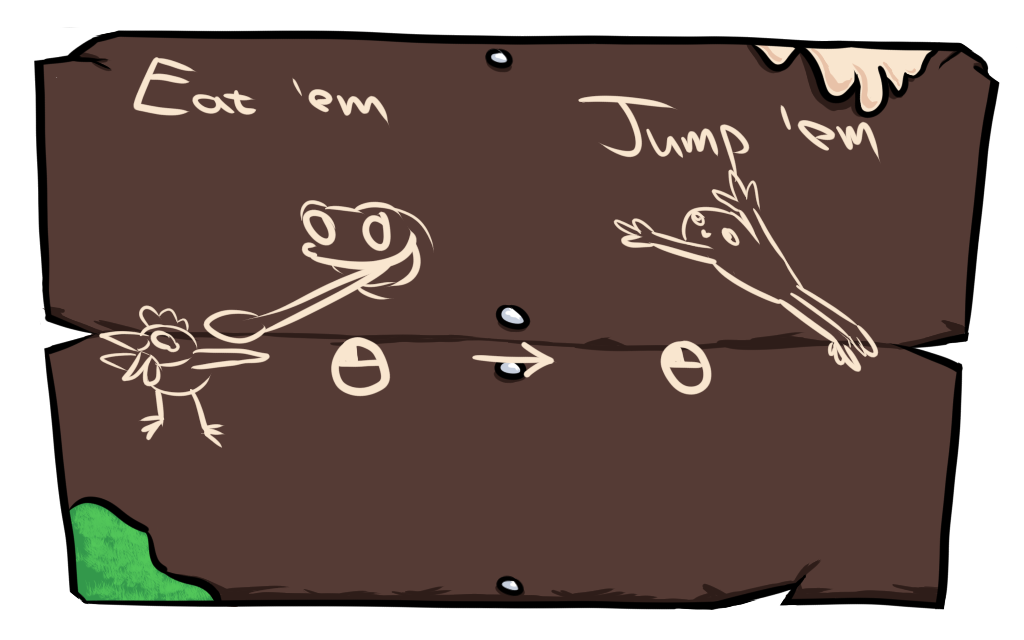 Eat 'em
Jump 'em